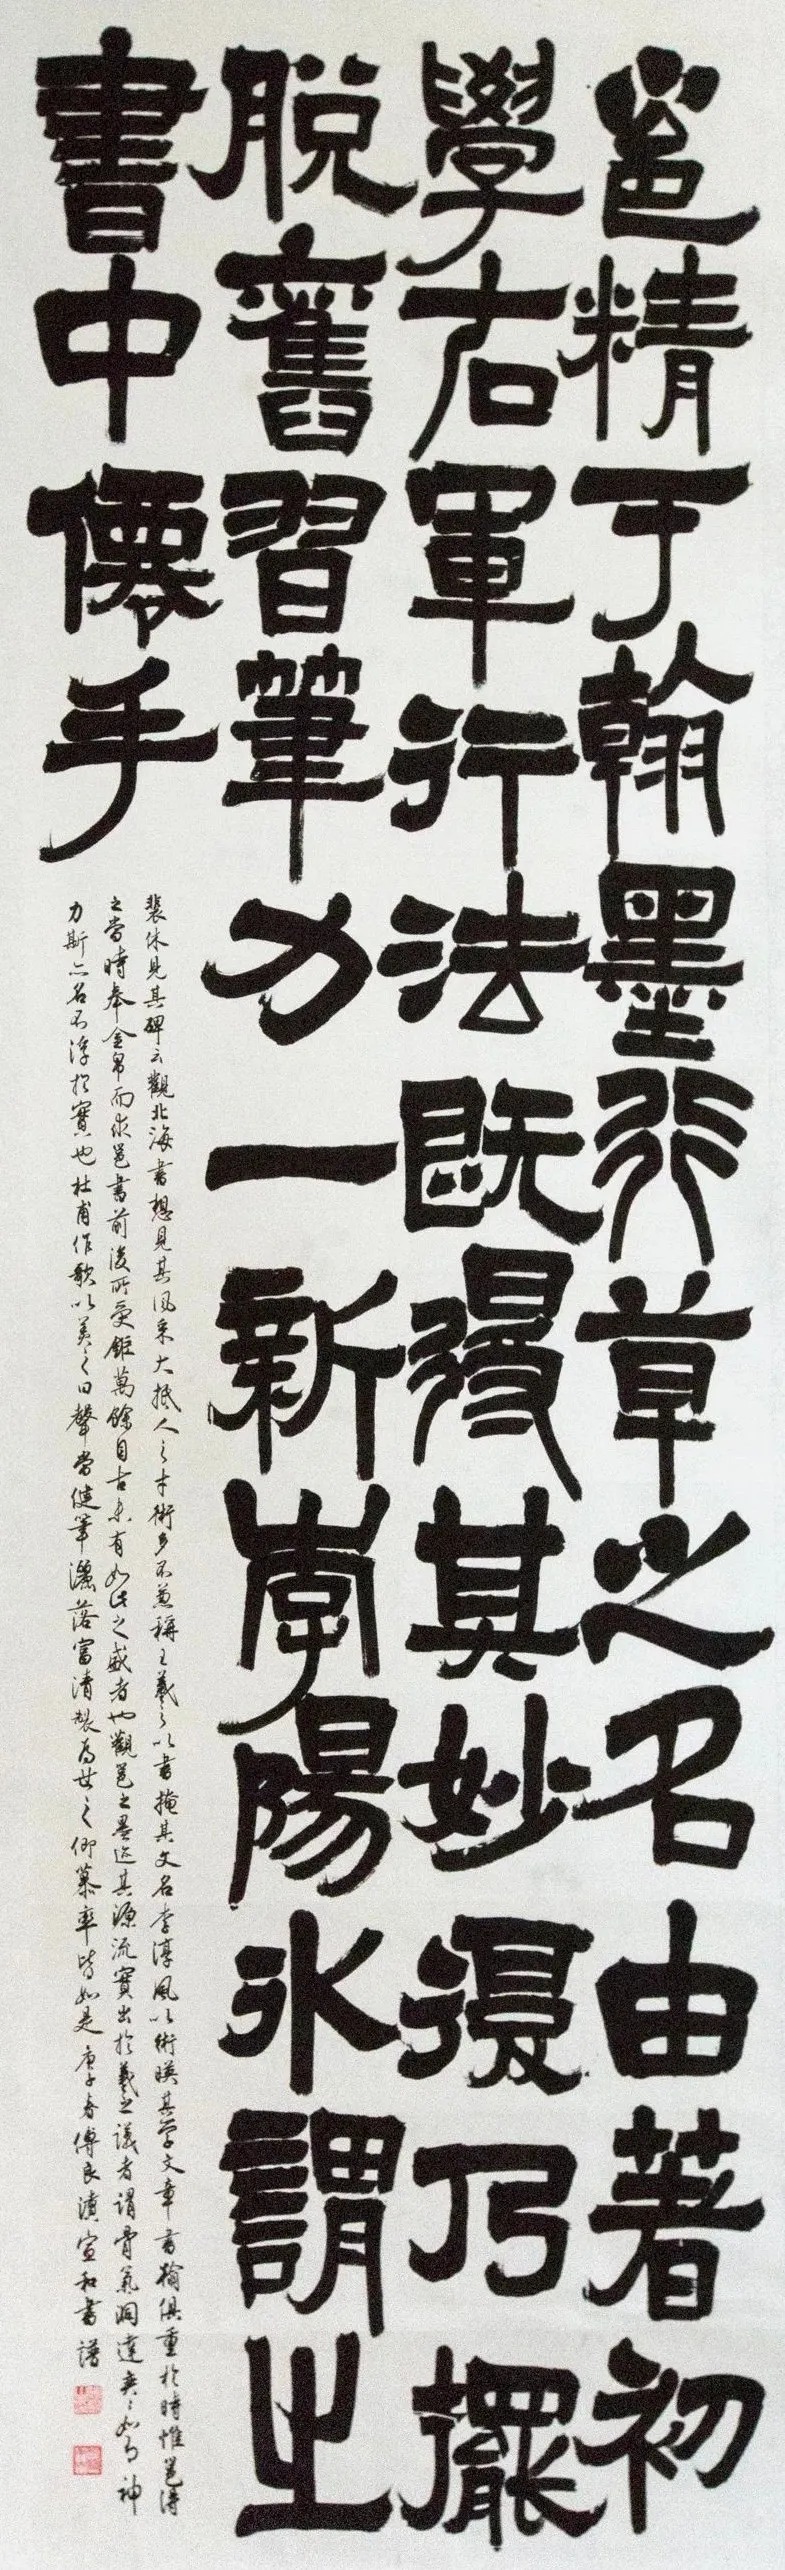 邕精于翰墨行草之名由著初
學右軍行法既得其妙復乃擺
脫舊習筆力一新李陽冰謂之
書中僊手
裴休見其碑云觀北海書想見其風采大抵人之才術多不兼稱王羲之以書掩其文名李淳風以術映其學文章書翰俱重於時惟邕得
之當時奉金帛而求邕書前後所受鉅萬餘自古未有如此之盛者也觀邕之墨迹其源流實出於羲之議者謂骨氣洞達奕奕如有神
力斯亦名不浮於實也杜甫作歌以美之曰聲當健筆灑落富清製為世之仰慕率皆如是庚子春傅良濆宣和書譜